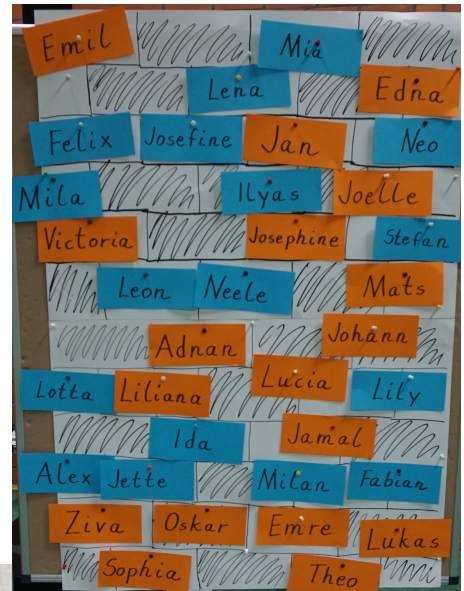 Emil Mia
Lena Edna
Felix Josefine Jan Neo
Mila Ilyas Joelle
Victoria Josephine Stefan
Leon Neele Mats
Adnan Johann
Lotta Liliana Lucia Lily
Ida Jamal
Alex Jette Milan Fabian
Ziva Oskar Emre Lukas
Sophia Theo